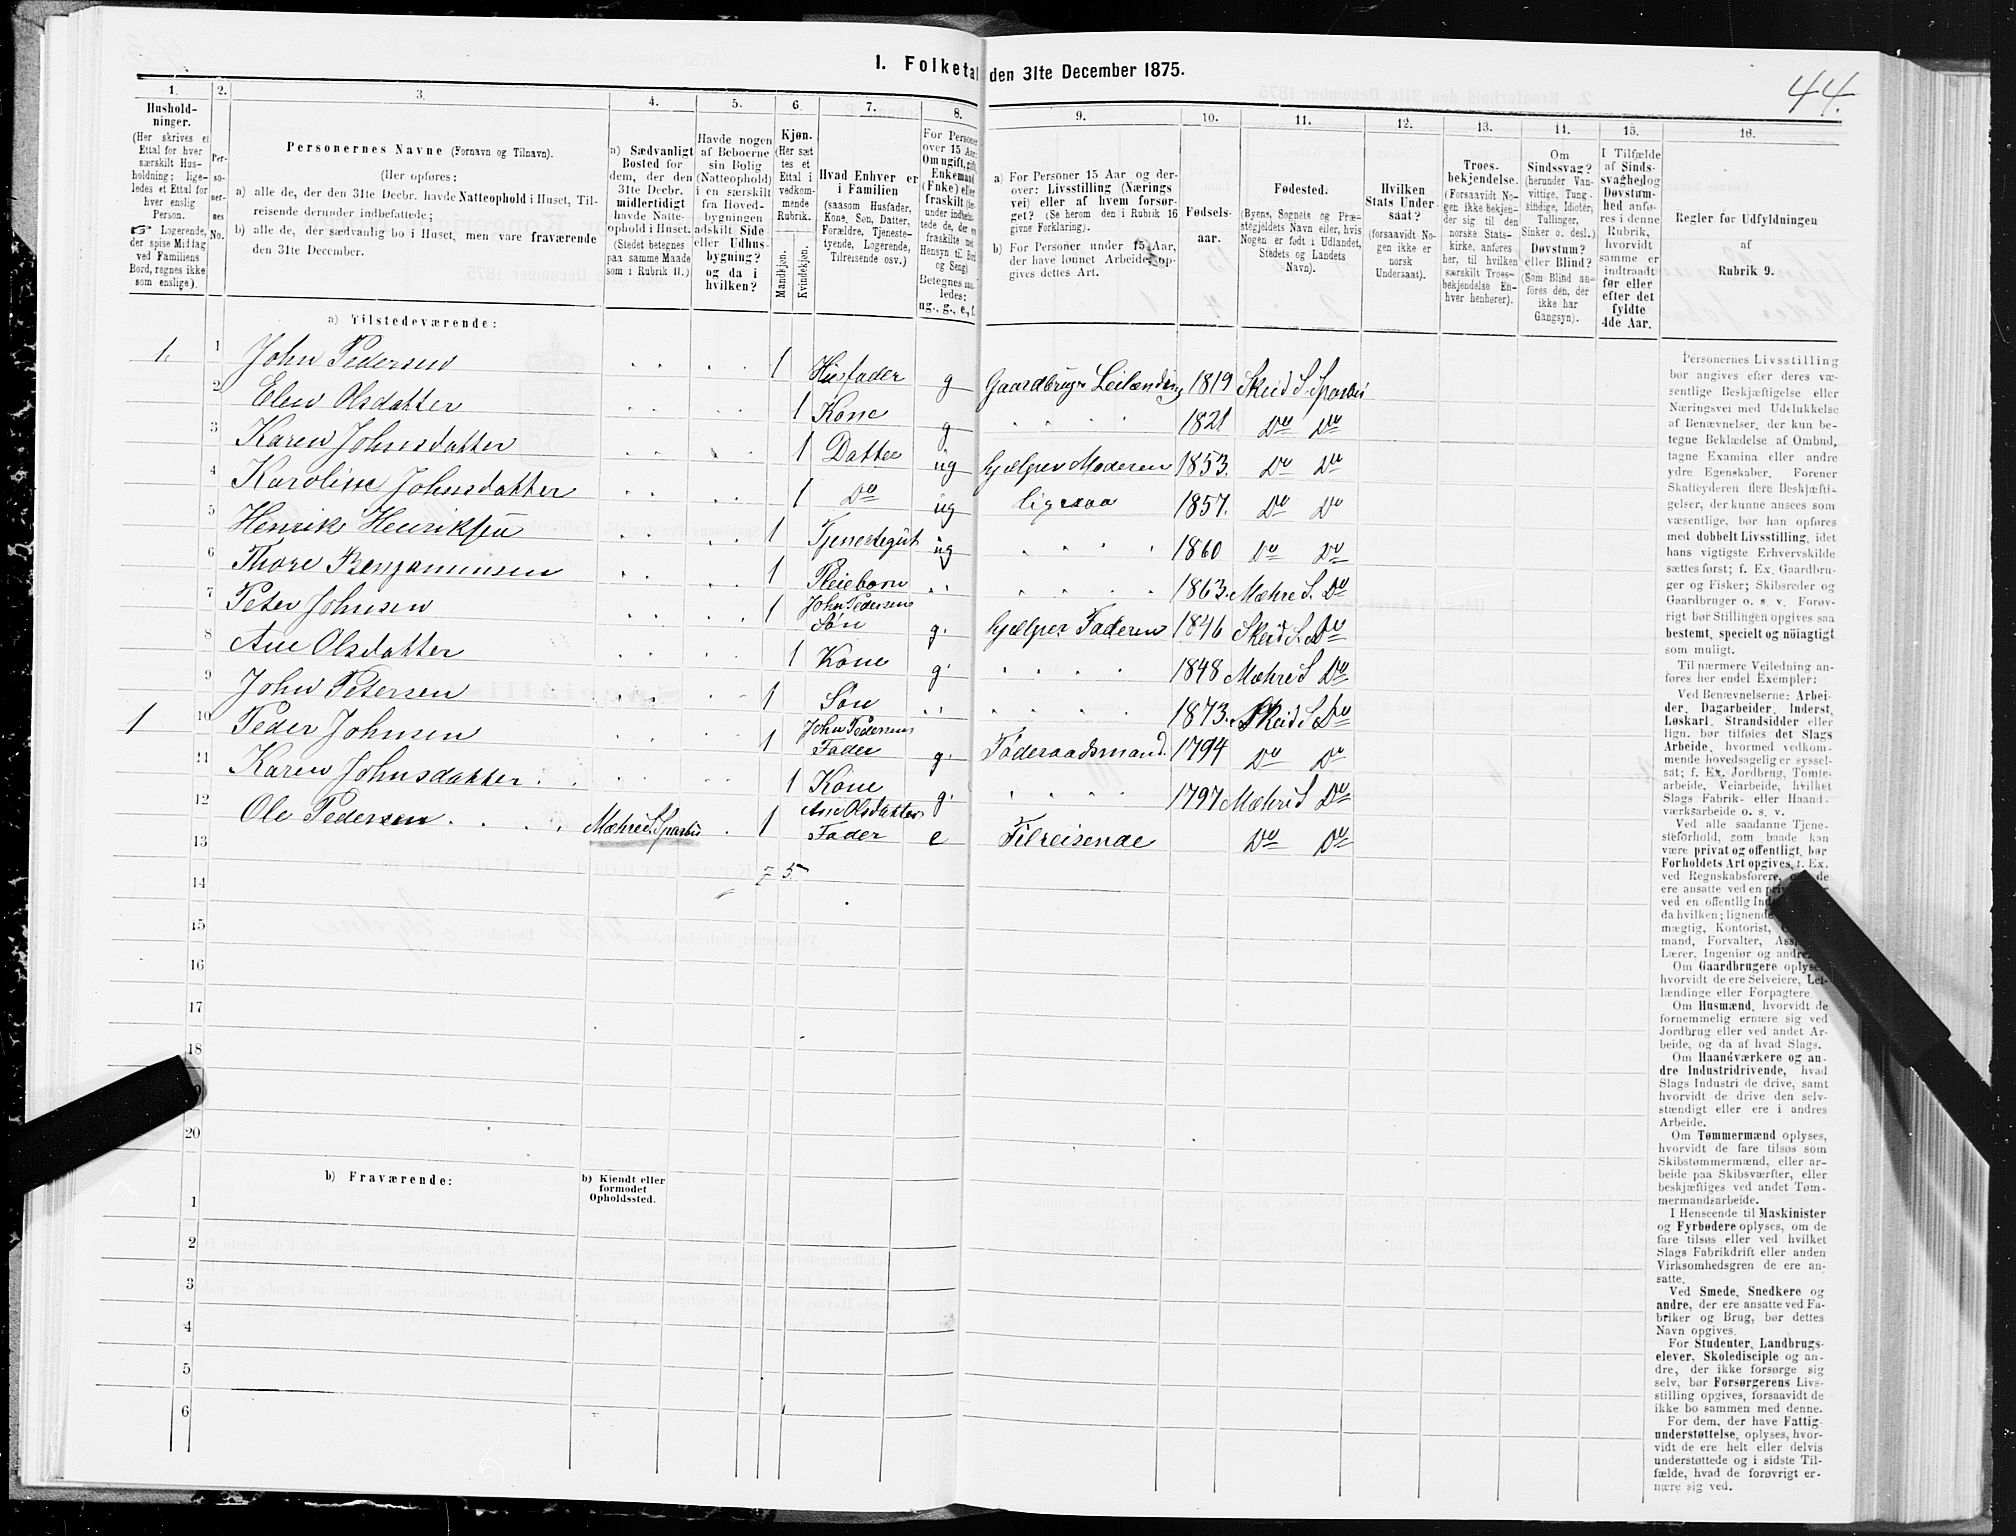 44.
I. Folketal den 31te December 1875.
1.
2.
3.
4.
5.
6.
7.
8.
9.
10.
11.
12.
13.
14.
15.
16.
Hushold-
ninger.
(Her skrives et
Ettal for hver
særskilt Hus-
holdning; lige-
ledes et Ettal for
hver enslig
Person.
☞ Logerende,
der spise Middag
ved Familiens
Bord, regnes ikke
som enslige).
Per-
so-
ner-
nes
No.
Personernes Navne (Fornavn og Tilnavn).
(Her opføres:
a) alle de, der den 31te Decbr. havde Natteophold i Huset, Til-
reisende derunder indbefattede;
b) alle de, der sædvanlig bo i Huset, men vare fraværende
den 31te December.
a) Sædvanligt
Bosted for
dem, der den
31te Decbr.
midlertidigt
havde Natte-
ophold i Huset.
(Stedet betegnes
paa samme Maade
som i Rubrik 11.)
Havde nogen
af Beboerne
sin Bolig
(Natteophold)
i en særskilt
fra Hoved-
bygningen
adskilt Side-
eller Udhus-
bygning?
og da i
hvilken?
Kjøn.
(Her sæt-
tes et
Ettal i
vedkom-
mende
Rubrik.
Mandkjøn.
Kvindekjøn.
Hvad Enhver er
i Familien
(saasom Husfader,
Kone, Søn, Datter,
Forældre, Tjeneste-
tyende, Logerende,
Tilreisende osv.)
For Personer
over 15 Aar:
Om ugift, gift,
Enkemand
(Enke) eller
fraskilt
Betegnes saa-
ledes:
ug., g., e., f.
a) For Personer 15 Aar og der-
over: Livsstilling (Nærings-
vei) eller af hvem forsør-
get? (Se herom den i Rubrik 16
givne Forklaring).
b) For Personer under 15 Aar,
der have lønnet Arbeide, op-
gives dettes Art.
Fødsels-
aar.
Fødested.
(Byens, Sognets og Præ-
stegjeldets Navn eller, hvis
Nogen er født i Udlandet,
Stedets og Landets
Navn).
Hvilken
Stats Under-
saat?
(forsaavidt No-
gen ikke er
norsk
Undersaat).
Troes-
bekjendelse.
(Forsaavidt No-
gen ikke bekjen-
der sig til den
norske Stats-
kirke, anføres
her, til hvilken
særskilt Troes-
bekjendelse En-
hver henhører).
Om
Sindssvag?
(herunder Van-
vittige, Tung-
sindige, Idioter,
Tullinger,
Sinker o. desl.)
Døvstum?
eller Blind?
(Som Blind an-
føres den, der
ikke har
Gangsyn).
I Tilfælde
af Sinds-
svaghed og
Døvstum-
hed anfø-
res i denne
Rubrik,
hvorvidt
samme er
indtraadt
før eller
efter det
fyldte
4de Aar.
Regler for Udfyldningen
af
Rubrik 9.
a) Tilstedeværende:
1. 1 John Pedersen 1 Husfader g Gaardbruger Leilænding 1819 Skeid S. Sparbu
2 Elen Olsdatter 1 Kone g 1821 Do Do
3 Karen Johnsdatter 1 Datter ug hjælper Moderen 1853. Do Do
4 Karoline Johnsdatter 1 Do ug ligesaa 1857. Do Do
5 Henrik Henriksen 1 Tjenestegut ug 1860 Do Do
6 Thore Benjaminsen 1 Pleiebarn 1863. Mæhre S. Do
7 Peter Johnsen 1 John Pedersens Søn g. hjælper Faderen 1846 Skeid S. Do
8 Ane Olsdatter 1 Kone g. 1848 Mæhre S Do
9 John Petersen 1 Søn 1873. Skeid S. Do
1 10 Peder Johnsen 1 John Pedersens Fader g. Føderaadsmand. 1794 Do Do
11 Karen Johnsdatter 1 Kone g. 1797 Mæhre S Do
12 Ole Pedersen Mæhre S. Sparbu 1 Ane Olsdatters Fader e Tilreisende Do Do
13
7 5.
14
15
16
17
18
20
b) Fraværende:
b) Kjendt eller
formodet
Opholdssted.
1
2
3
4
5
6
Personernes Livsstilling
bør angives efter deres væ-
sentlige Beskjæftigelse eller
Næringsvei med Udelukkelse
af Benævnelser, der kun be-
tegne Beklædelse af Ombud,
tagne Examina eller andre
ydre Egenskaber. Forener
Skatteyderen flere Beskjæfti-
gelser, der kunne ansees som
væsentlige, bør han opføres
med dobbelt Livsstilling, idet
hans vigtigste Erhvervskilde
sættes først; f. Ex. Gaardbru-
ger og Fisker; Skibsreder og
Gaardbruger o. s. v. Forøv-
rigt bør Stillingen opgives saa
bestemt, specielt og nöiagtigt
som muligt.
Til nærmere Veiledning an-
føres her endel Exempler:
Ved Benævnelserne: Arbei-
der, Dagarbeider, Inderst,
Løskarl, Strandsidder eller
lign. bør tilføies det Slags
Arbeide, hvormed vedkom-
mende hovedsagelig er syssel-
sat; f. Ex. Jordbrug, Tomte-
arbeide, Veiarbeide, hvilket
Slags Fabrik- eller Haand-
værksarbeide o. s. v.
Ved alle saadanne Tjene-
steforhold, som baade kan
være privat og offentligt, bør
Forholdets Art opgives, f. Ex.
ved Regnskabsførere,
ere ansatte ved en
ved en offentlig
da hvilken; lignende
mægtig, Kontorist,
mand, Forvalter,
Lærer, Ingeniør og andre.
Om Gaardbrugere oplyses,
hvorvidt de ere Selveiere, Lei-
lændinge eller Forpagtere.
Om Husmænd, hvorvidt de
fornemmelig ernære sig ved
Jordbrug eller ved andet Ar-
beide, og da af hvad Slags.
Om Haandværkere og an-
dre Industridrivende, hvad
Slags Industri de drive, samt
hvorvidt de drive den selv-
stændigt eller ere i andres
Arbeide.
Om Tømmermænd oplyses,
hvorvidt de fare tilsøs som
Skibstømmermænd, eller ar-
beide paa Skibsværfter, eller
beskjæftiges ved andet Tøm-
mermandsarbeide.
I Henseende til Maskinister
og Fyrbødere oplyses, om de
fare tilsøs eller ved hvilket
Slags Fabrikdrift eller anden
Virksomhedsgren de ere an-
satte.
Ved Smede, Snedkere og
andre, der ere ansatte ved Fa-
briker og Brug, bør dettes
Navn opgives.
For Studenter, Landbrugs-
elever, Skoledisciple og an-
dre, der ikke forsørge sig
selv, bør Forsørgerens Livs-
stilling opgives, forsaavidt de
ikke bo sammen med denne.
For dem, der have Fattig-
understøttelse, oplyses, hvor-
vidt de ere helt eller delvis
understøttede og i sidste Til-
fælde, hvad de forøvrigt er-
nære sig ved.